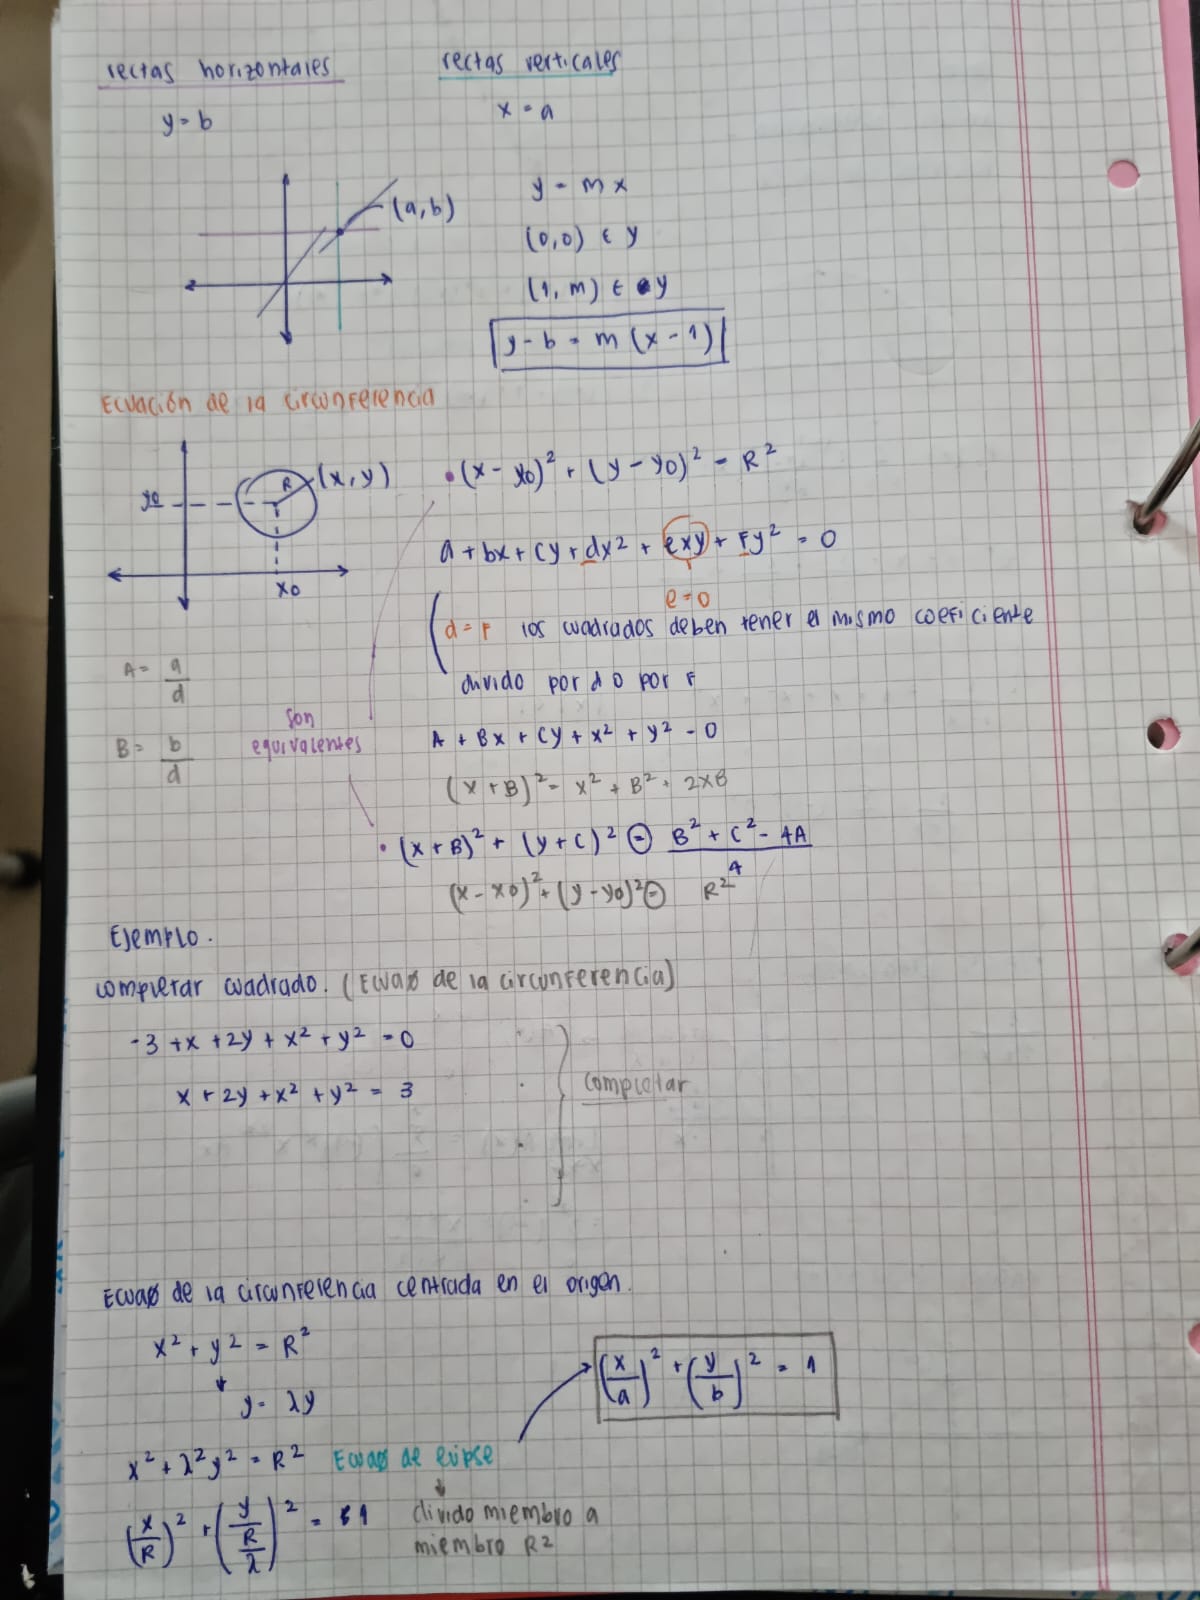 rectas horizontales
y = b
rectas verticales
x = a
(a,b)
y = mx
(0,0) ∈ y
(1,m) ∈ y
y-b = m(x-1)
Ecuación de la circunferencia
R
(x,y)
y0
x0
• (x-x0)² + (y-y0)² = R²
a + bx + cy + dx² + exy + Fy² = 0
e=0
d=F los cuadrados deben tener el mismo coeficiente
divido por d o por F
A = a/d
B = b/d
son
equivalentes
A + Bx + Cy + x² + y² = 0
(x+B)² = x² + B² + 2xB
• (x+B)² + (y+C)² = (B² + C² - 4A)/4
(x-x0)² + (y-y0)² = R²
Ejemplo.
completar cuadrado. (Ecuaø de la circunferencia)
-3 + x + 2y + x² + y² = 0
x + 2y + x² + y² = 3
completar
Ecuaø de la circunferencia centrada en el origen.
x² + y² = R²
y = λy
x² + λ²y² = R² Ecuaø de elipse
(x/a)² + (y/b)² = 1
(x/R)² + (y/(R/λ))² = 1
divido miembro a
miembro R²